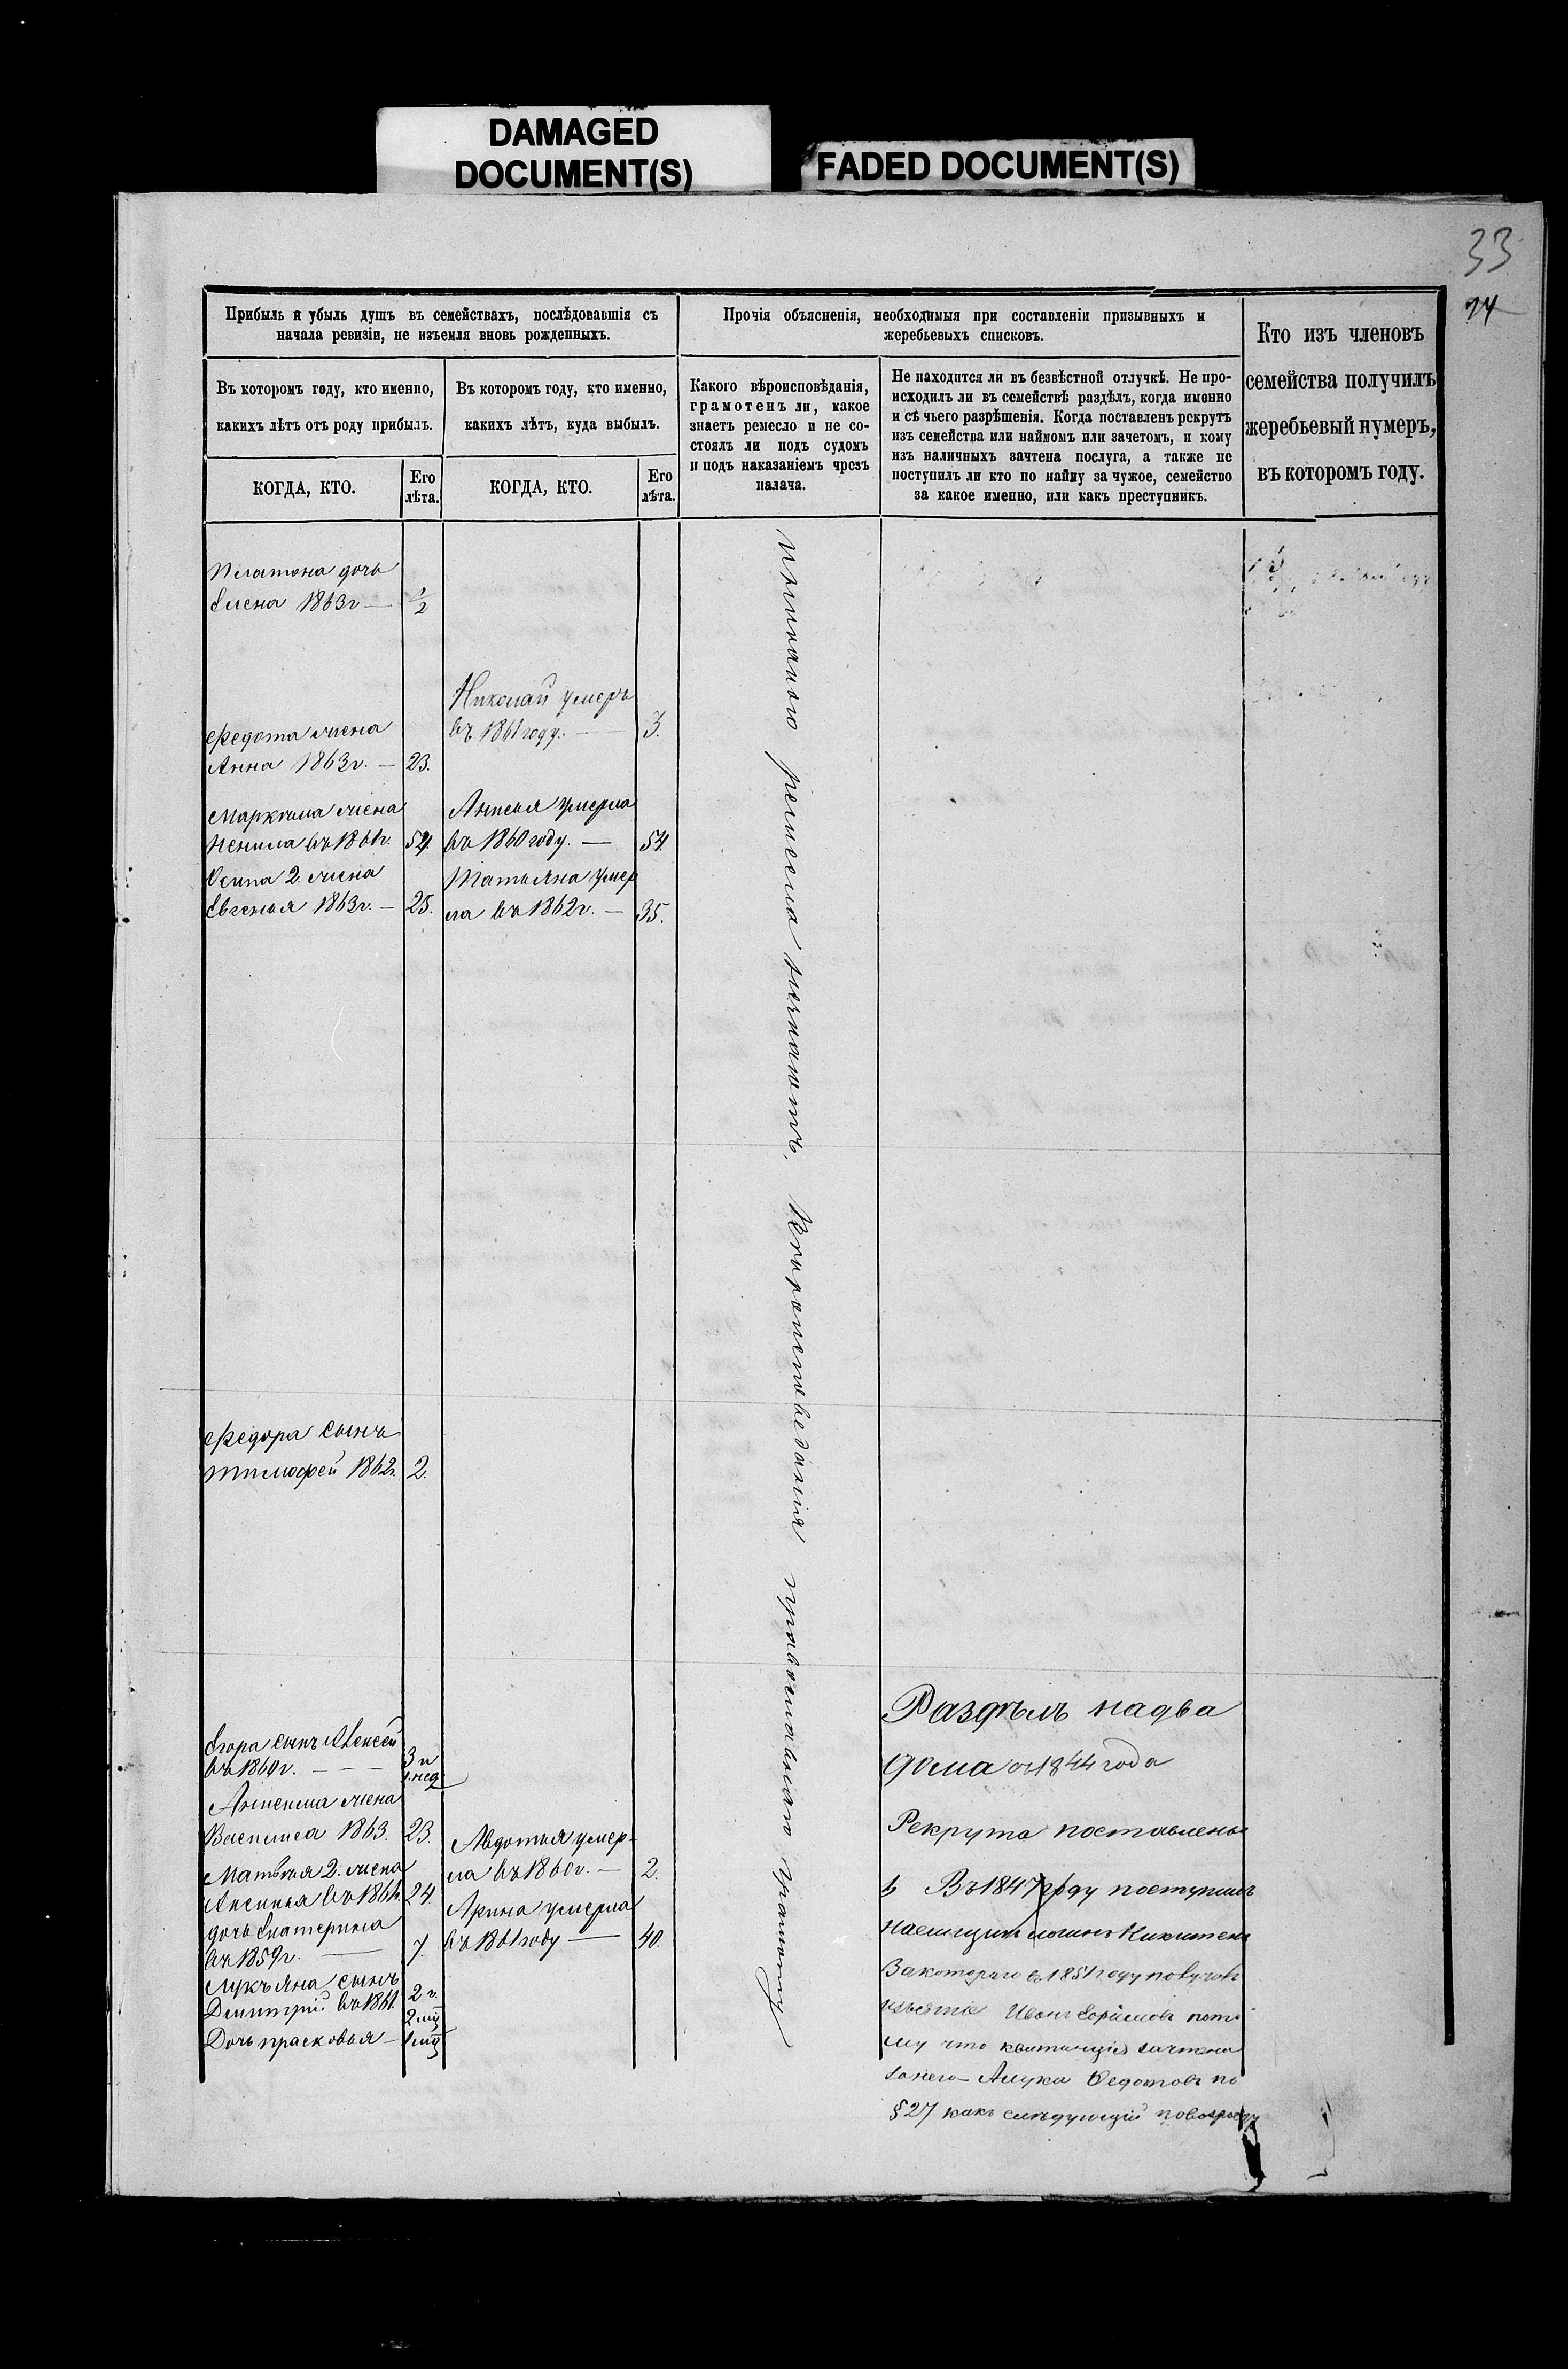 DAMAGED
DOCUMENT(S)
FADED DOCUMENT(S)
33
14
Прибыль и убыль душъ въ семействахъ, послѣдовавшія съ
начала ревизіи, не изъемля вновь рожденныхъ.
Въ которомъ году, кто именно,
какихъ лѣтъ отъ роду прибылъ.
КОГДА, КТО.
Его
лѣта.
Въ которомъ году, кто именно,
какихъ лѣтъ, куда выбылъ.
КОГДА, КТО.
Его
лѣта.
Прочія объясненія, необходимыя при составленіи призывныхъ и
жеребьевыхъ списковъ.
Какого вѣроисповѣданія,
грамотенъ ли, какое
знаетъ ремесло и не со-
стоялъ ли подъ судомъ
и подъ наказаніемъ чрезъ
палача.
Не находится ли въ безвѣстной отлучкѣ. Не про-
исходилъ ли въ семействѣ раздѣлъ, когда именно
и съ чьего разрѣшенія. Когда поставленъ рекрутъ
изъ семейства или наймомъ или зачетомъ, и кому
изъ наличныхъ зачтена послуга, а также не
поступилъ ли кто по найму за чужое, семейство
за какое именно, или какъ преступникъ.
Кто изъ членовъ
семейства получилъ
жеребьевый нумеръ,
въ которомъ году.
Платона дочь
Елена 1863г — 1/2
Николай умеръ
въ 1861 году. — 3.
Федота жена
Анна 1863г. — 23.
жена
Ненила въ 1861г. 54.
умерла
въ 1860 году. — 54.
Осипа 2. жена
Евгенья 1863г. — 25.
Татьяна умер
ла въ 1862г. — 35.
Федора сынъ
Тимофей 1862г. 2.
Егора сынъ Алексей
въ 1860г. — 3 н
нед
Антипа жена
Василиса 1863. 23.
Матвея 2. жена
Аксинья въ 1861г. 24.
дочь Екатерина
въ 1859г. — 7.
Лукъяна сынъ
Дмитрий въ 1861. 2 г.
2 мц
Дочь прасковья — 1 мц
Авдотья умер-
ла въ 1860г. — 2.
Арина умерла
въ 1861 году — 40.
ремесла незнаютъ. Вѣроисповедания православнаго
Разделъ надва
дома съ 1844 года
Рекрута поставлены
Въ 1847 году поступилъ
наемщикъ Никитенъ
Закотораго въ 1851 году
Иванъ пото
му что квитанція зачтена
занего — Лука Федотовъ по
§ 27 какъ следующій